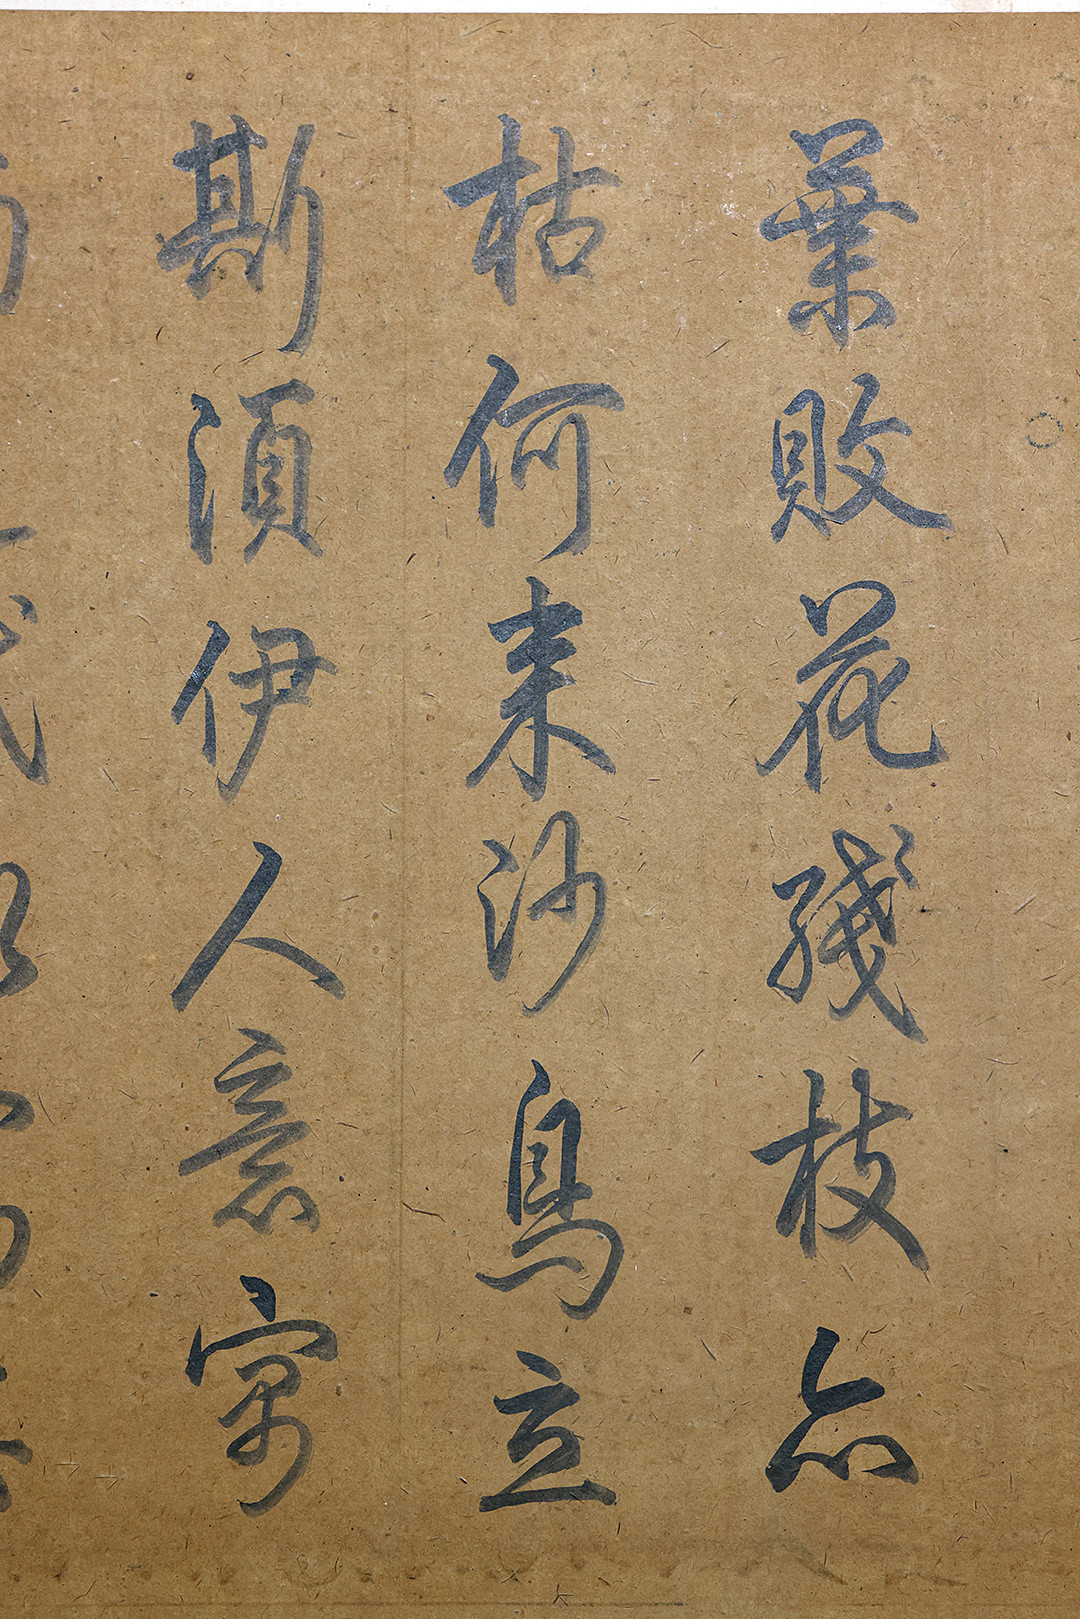 葉敗花殘枝亦
枯何来沙鳥立
斯須伊人意寓